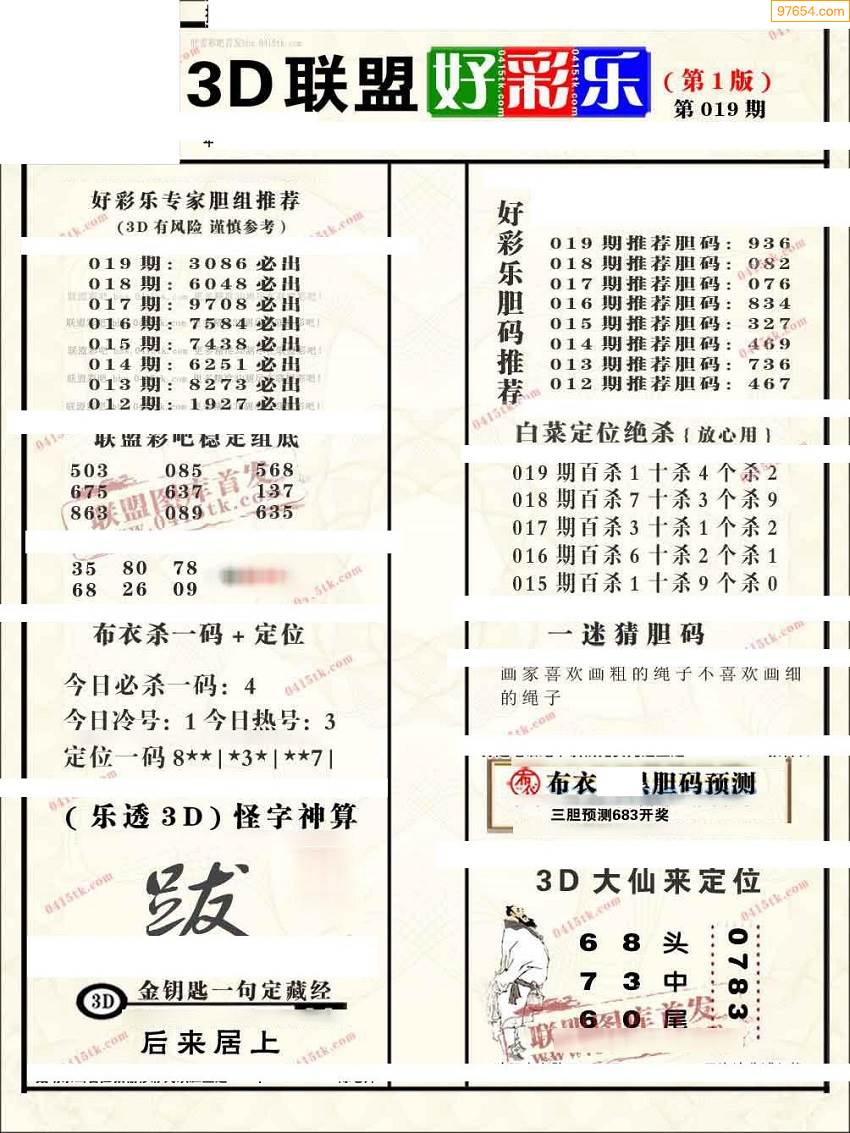 97654.com
3D联盟 好彩乐 (第1版)
第019期
好彩乐专家胆组推荐
(3D有风险 谨慎参考)
019期:3086必出
018期:6048必出
017期:9708必出
016期:7584必出
015期:7438必出
014期:6251必出
013期:8273必出
012期:1927必出
联盟彩吧稳定组底
503 085 568
675 637 137
863 089 635
35 80 78
68 26 09
布衣杀一码+定位
今日必杀一码:4
今日冷号:1 今日热号:3
定位一码8**|*3*|**7|
(乐透3D)怪字神算
跋
3D 金钥匙一句定藏经
后来居上
好彩乐胆码推荐
019期推荐胆码:936
018期推荐胆码:082
017期推荐胆码:076
016期推荐胆码:834
015期推荐胆码:327
014期推荐胆码:469
013期推荐胆码:736
012期推荐胆码:467
白菜定位绝杀{放心用}
019期百杀1十杀4个杀2
018期百杀7十杀3个杀9
017期百杀3十杀1个杀2
016期百杀6十杀2个杀1
015期百杀1十杀9个杀0
一迷猜胆码
画家喜欢画粗的绳子不喜欢画细
的绳子
布衣 胆码预测
三胆预测683开奖
3D大仙来定位
6 8 头
7 3 中
6 0 尾
0783
联盟图库首发
www.0415tk.com
0415tk.com